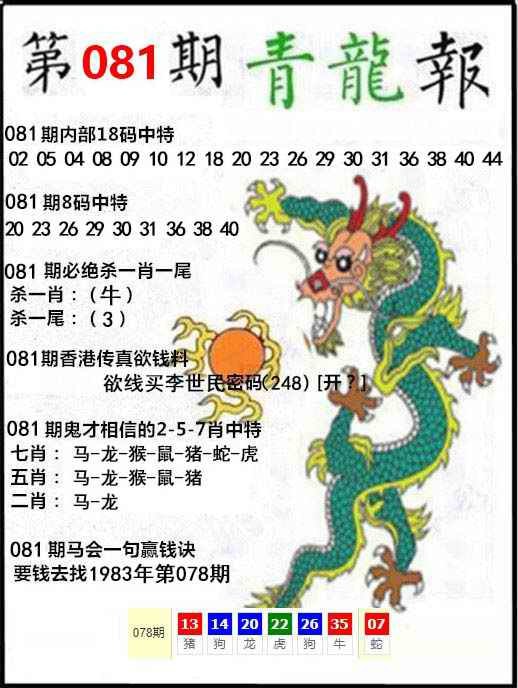 第081期青龍報
081期内部18码中特
02 05 04 08 09 10 12 18 20 23 26 29 30 31 36 38 40 44
081期8码中特
20 23 26 29 30 31 36 38 40
081 期必绝杀一肖一尾
杀一肖：（牛）
杀一尾：（3）
081期香港传真欲钱料
欲线买李世民密码(248) [开?]
081期鬼才相信的2-5-7肖中特
七肖： 马-龙-猴-鼠-猪-蛇-虎
五肖： 马-龙-猴-鼠-猪
二肖： 马-龙
081期马会一句赢钱诀
要钱去找1983年第078期
078期 13 14 20 22 26 35 07
猪 狗 龙 虎 狗 牛 蛇